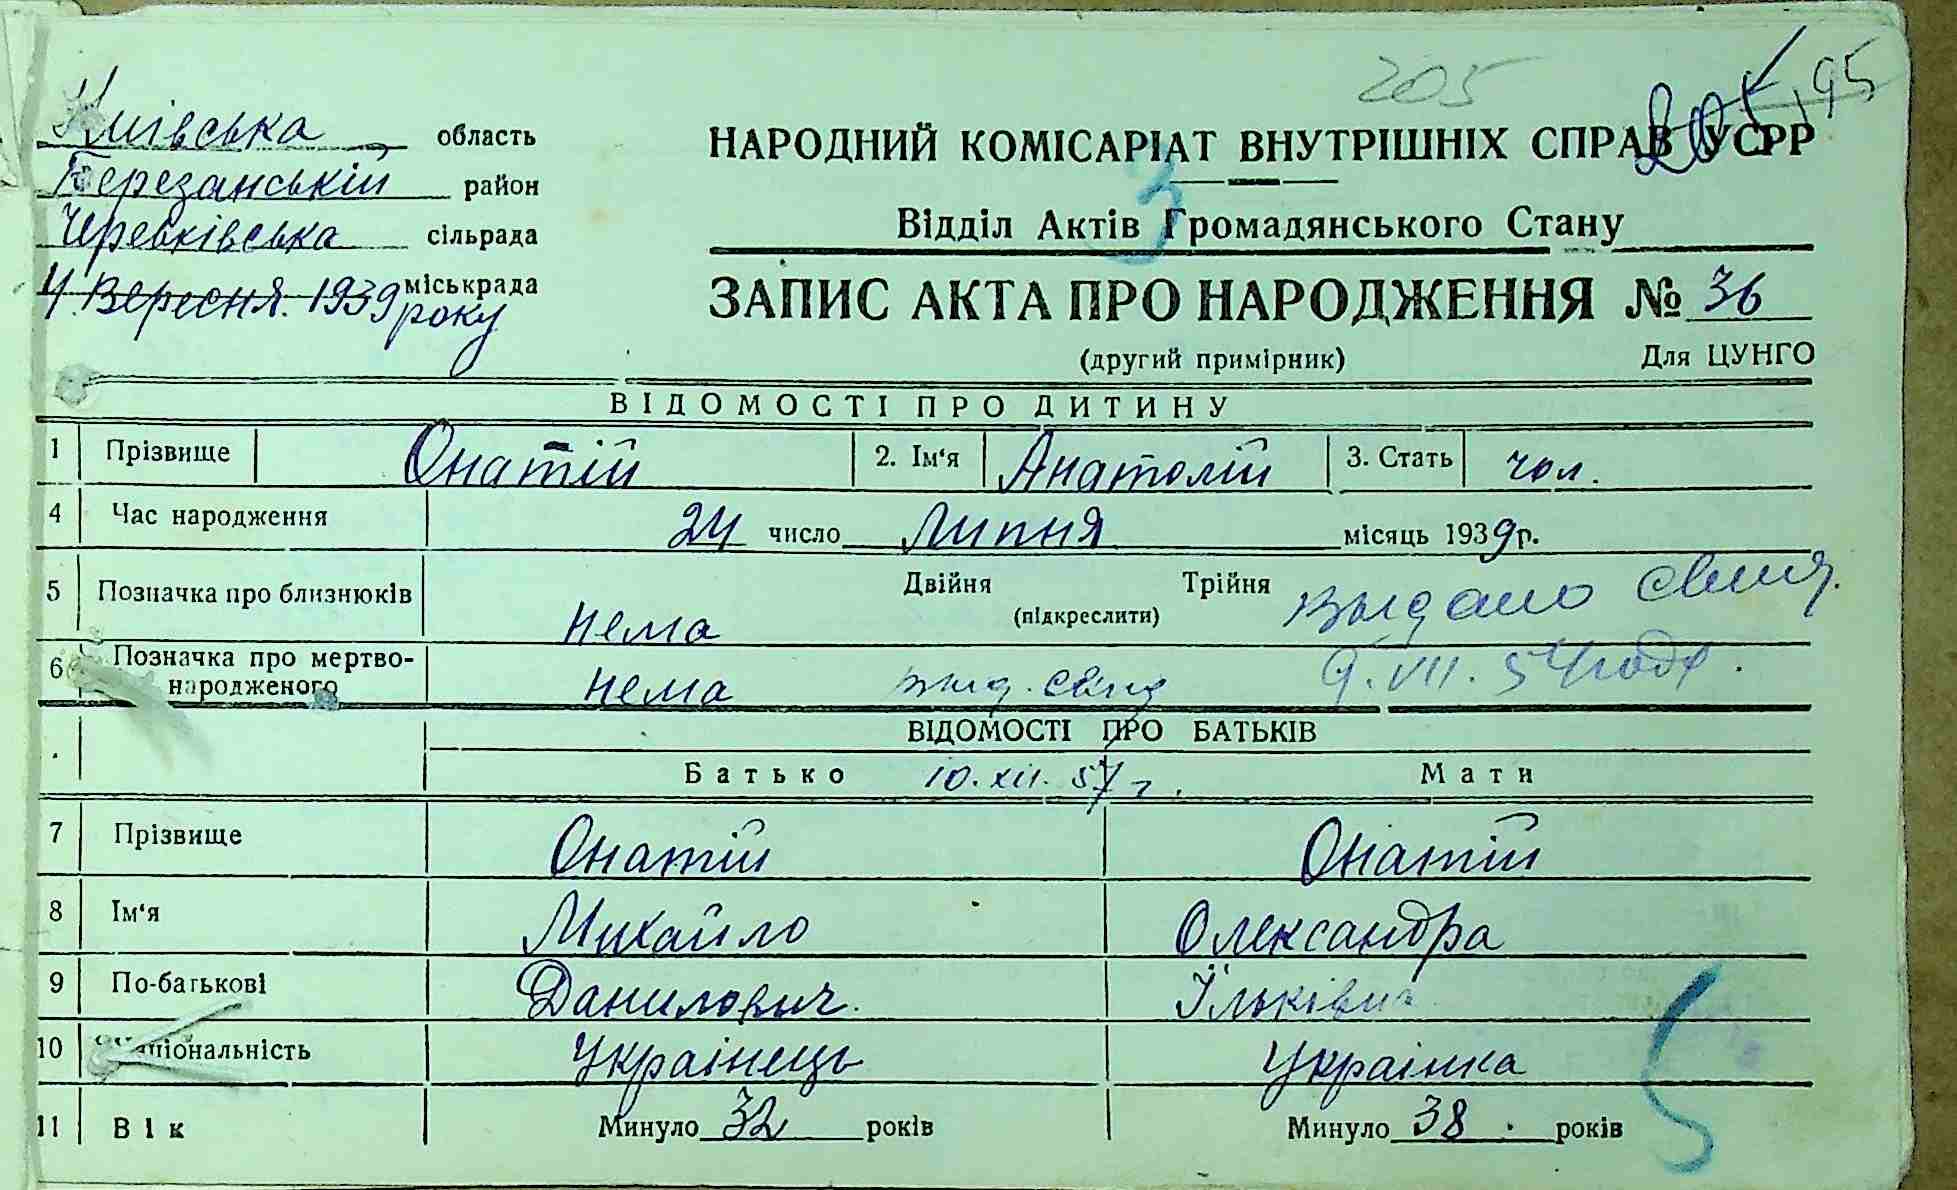 205
205 195
Київська область
Березанський район
Черевківська сільрада
міськрада
4. Вересня. 1939 року
НАРОДНИЙ КОМІСАРІАТ ВНУТРІШНІХ СПРАВ УСРР
3
Відділ Актів Громадянського Стану
ЗАПИС АКТА ПРО НАРОДЖЕННЯ № 36
(другий примірник) Для ЦУНГО
ВІДОМОСТІ ПРО ДИТИНУ
1 Прізвище Онатій 2. Ім'я Анатолій 3. Стать чол.
4 Час народження 24 число Липня місяць 1939 р.
5 Позначка про близнюків нема Двійня Трійня
(підкреслити)
6 Позначка про мертво-
народженого нема
9. VII. 54
ВІДОМОСТІ ПРО БАТЬКІВ
Батько 10. XII. 57 г. Мати
7 Прізвище Онатій Онатій
8 Ім'я Михайло Олександра
9 По-батькові Данилович. Ільківна
10 Національність Українець Українка
11 Вік Минуло 32 років Минуло 38 років